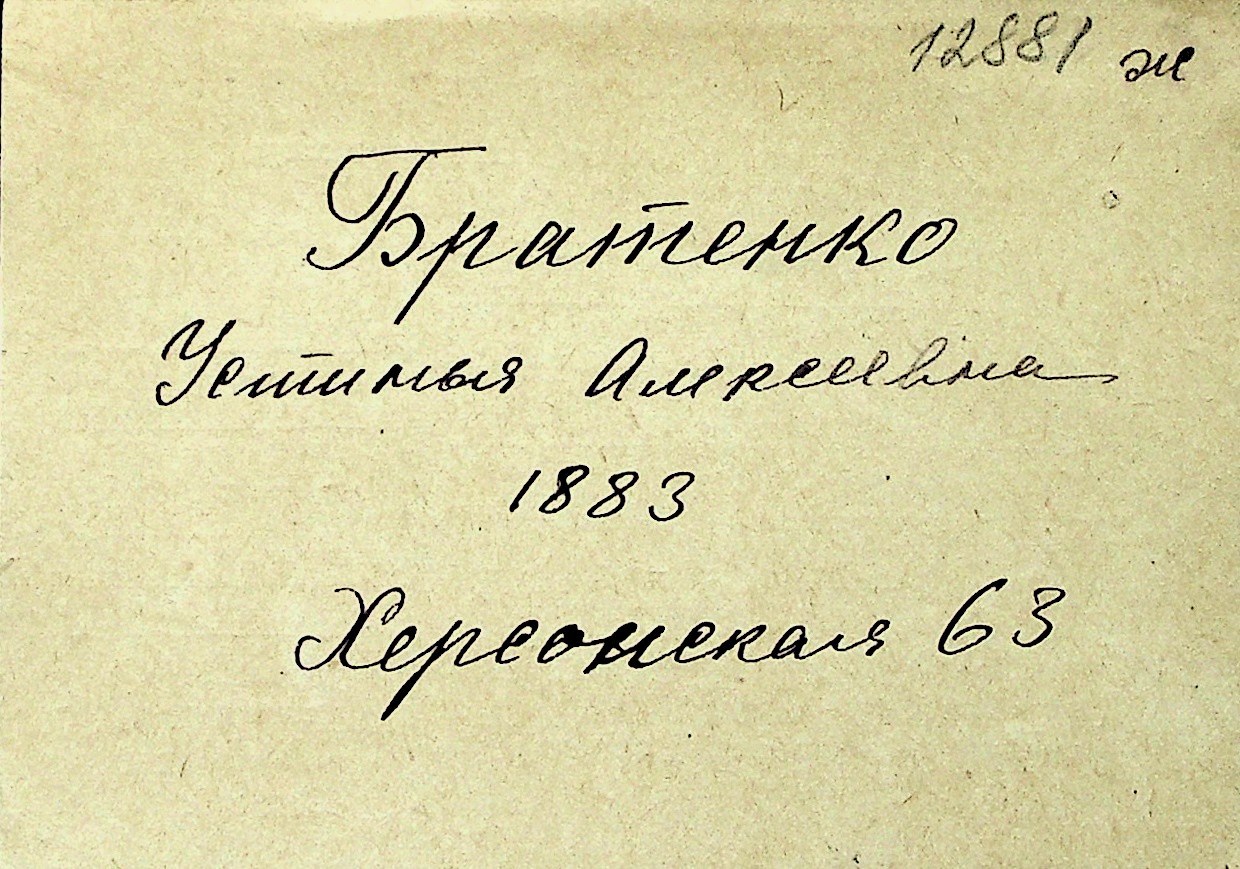 12881 ж
Братенко
Устинья Алексеевна
1883
Херсонская 63